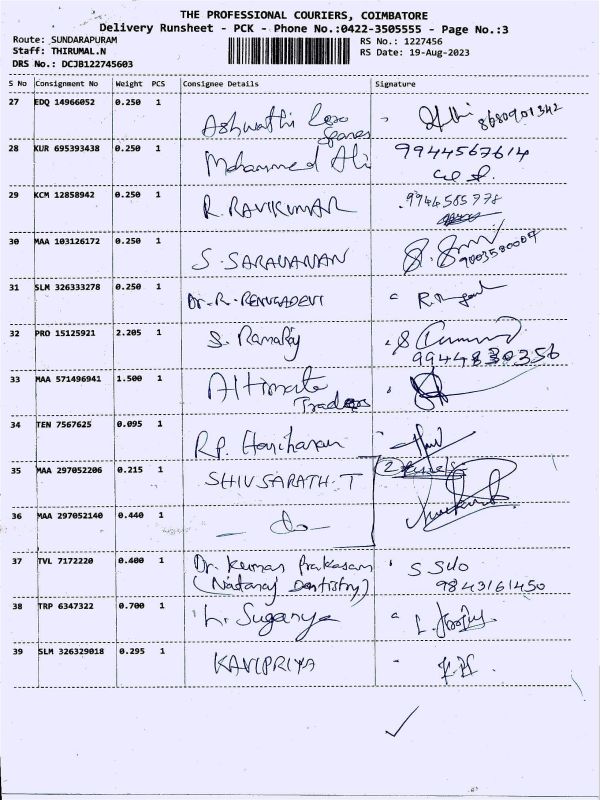 THE PROFESSIONAL COURIERS, COIMBATORE
Delivery Runsheet - PCK - Phone No.:0422-3505555 - Page No.:3
Route: SUNDARAPURAM RS No.: 1227456
Staff: THIRUMAL.N RS Date: 19-Aug-2023
DRS No.: DCJB122745603
S No Consignment No Weight PCS Consignee Details Signature
27 EDQ 14966052 0.250 1
Ashwathi Spares 8680901342
28 KUR 695393438 0.250 1
Mohammed Ali 9944567614
29 KCM 12858942 0.250 1
R. RAVIKUMAR 9946585778
30 MAA 103126172 0.250 1
S. SARAVANAN
31 SLM 326333278 0.250 1
Dr. R. RENUGADEVI
32 PRO 15125921 2.205 1
S. 9944830356
33 MAA 571496941 1.500 1
Altimate
Traders
34 TEN 7567625 0.095 1
R.P. Hariharan
35 MAA 297052206 0.215 1
SHIV SARATH. T
36 MAA 297052140 0.440 1
- do -
37 TVL 7172220 0.400 1
Dr. Kumar Prakasam
(Nataraj Dentistry) 9843161450
38 TRP 6347322 0.700 1
L. Suganya
39 SLM 326329018 0.295 1
KAVIPRIYA